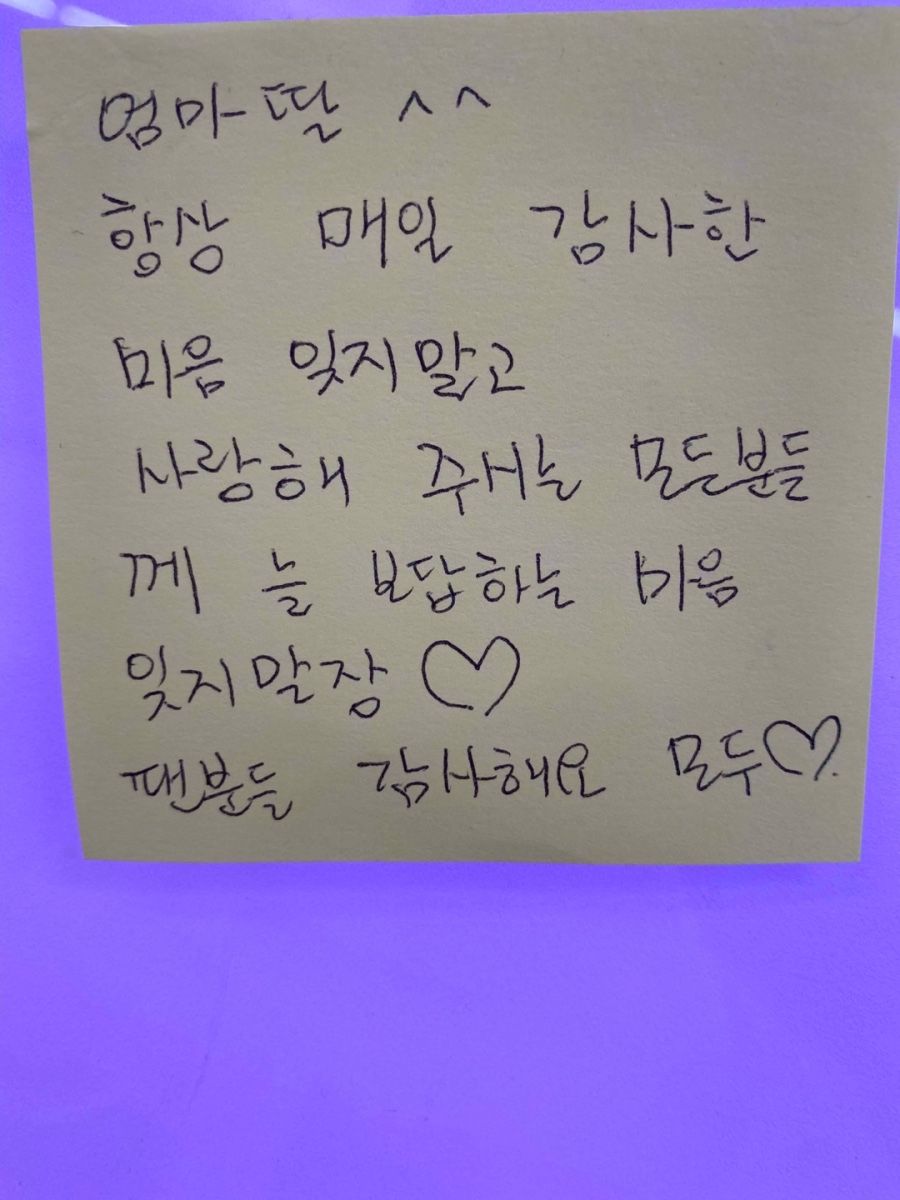 엄마딸 ^^
항상 매일 감사한
마음 잊지말고
사랑해 주시는 모든분들
께 늘 보답하는 마음
잊지말장 ♡
팬분들 감사해요 모두♡.